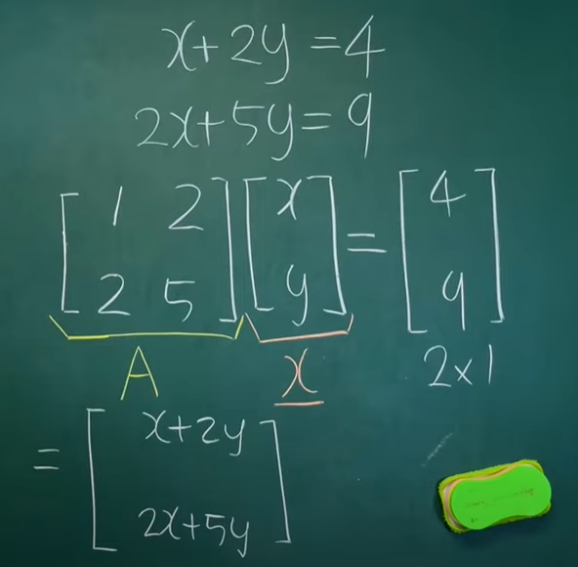 x+2y=4
2x+5y=9
[1 2
2 5][x
y]=[4
9]
A x 2x1
=[x+2y
2x+5y]